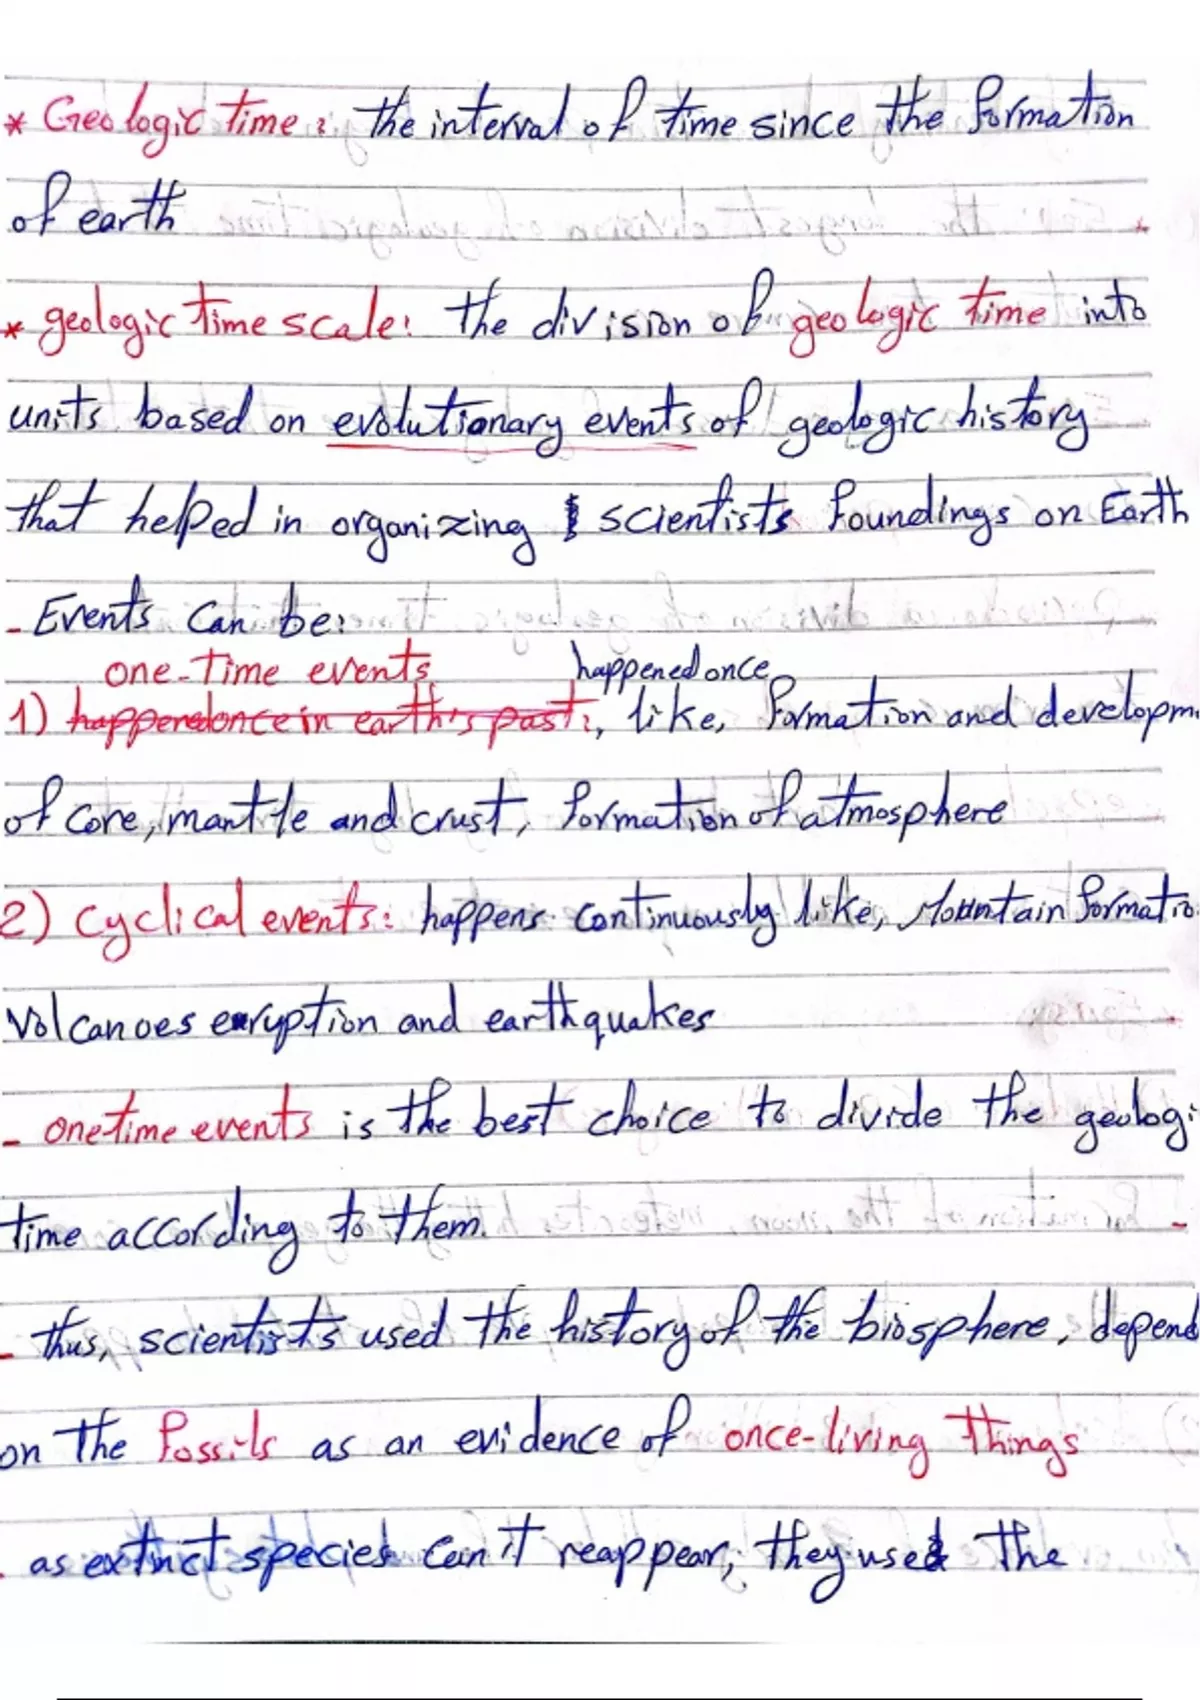 * Geologic time : the interval of time since the formation
of earth
* geologic time scale: the division of geologic time into
units based on evolutionary events of geologic history
that helped in organizing scientists foundings on Earth
- Events can be:
one-time events happened once
1) happened once in earth's past:, like, formation and developm
of core, mantle and crust, formation of atmosphere
2) Cyclical events: happens continuously like, Mountain formatio
Volcanoes eruption and earthquakes
- onetime events is the best choice to divide the geologi
time according to them.
- thus, scientists used the history of the biosphere, depend
on the fossils as an evidence of once-living things
. as extinct species can't reappear, they used the